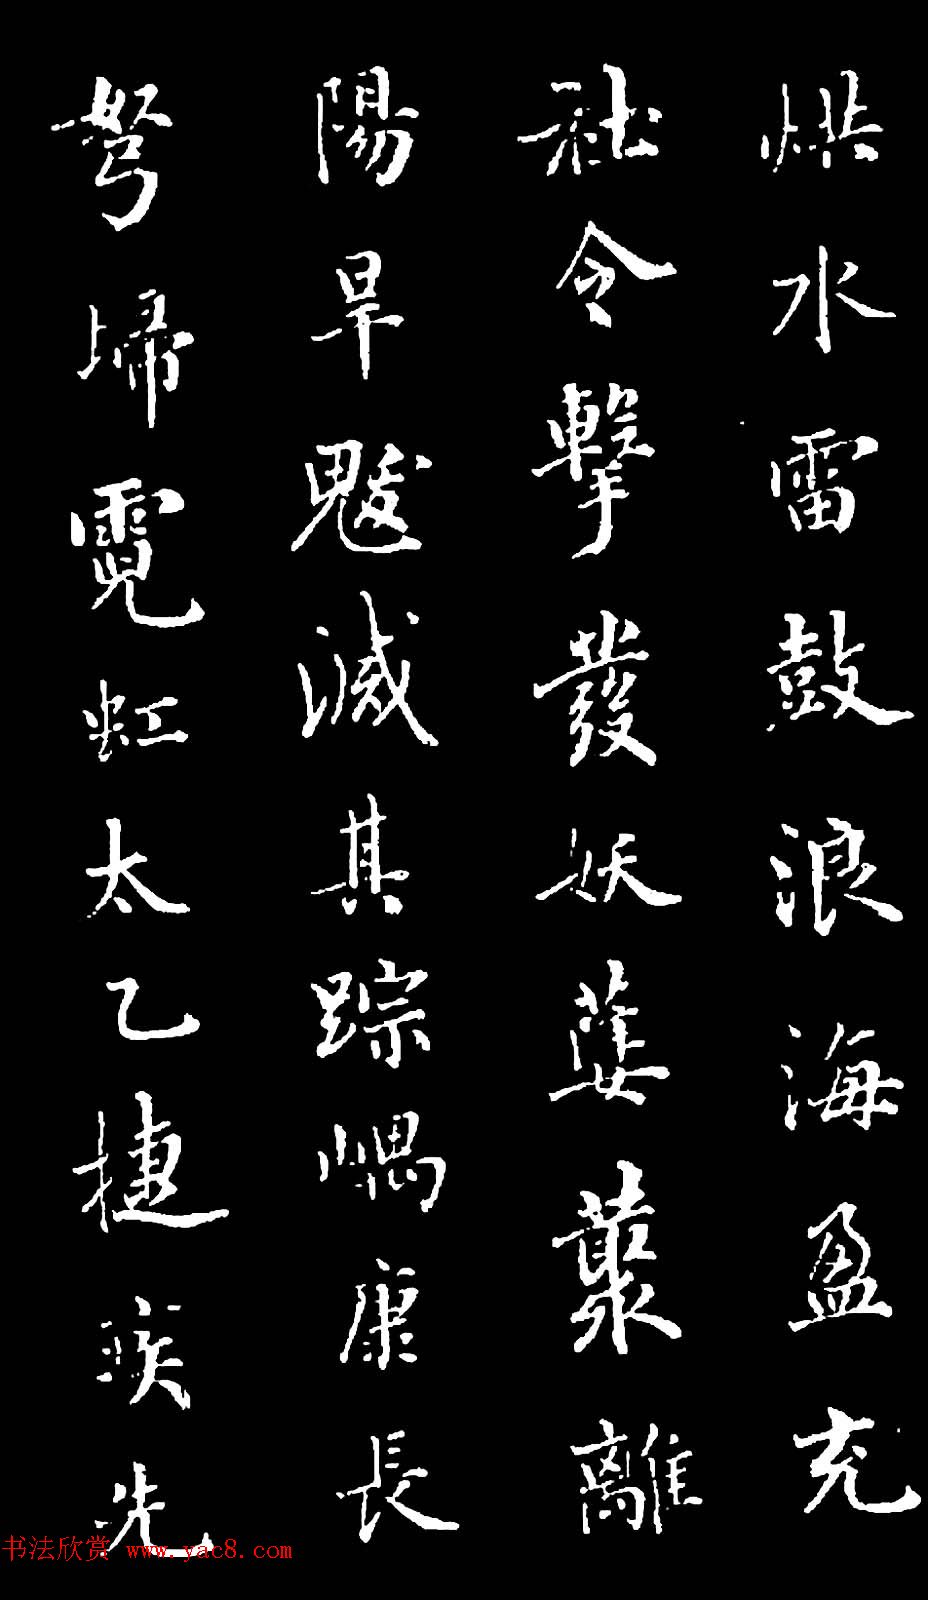 烘水雷鼓浪海盈充
社令擊發妖蔞叢離
陽旱魃滅其踪嵎康長
弩歸霓虹太乙捷疾先
书法欣赏 www.yac8.com